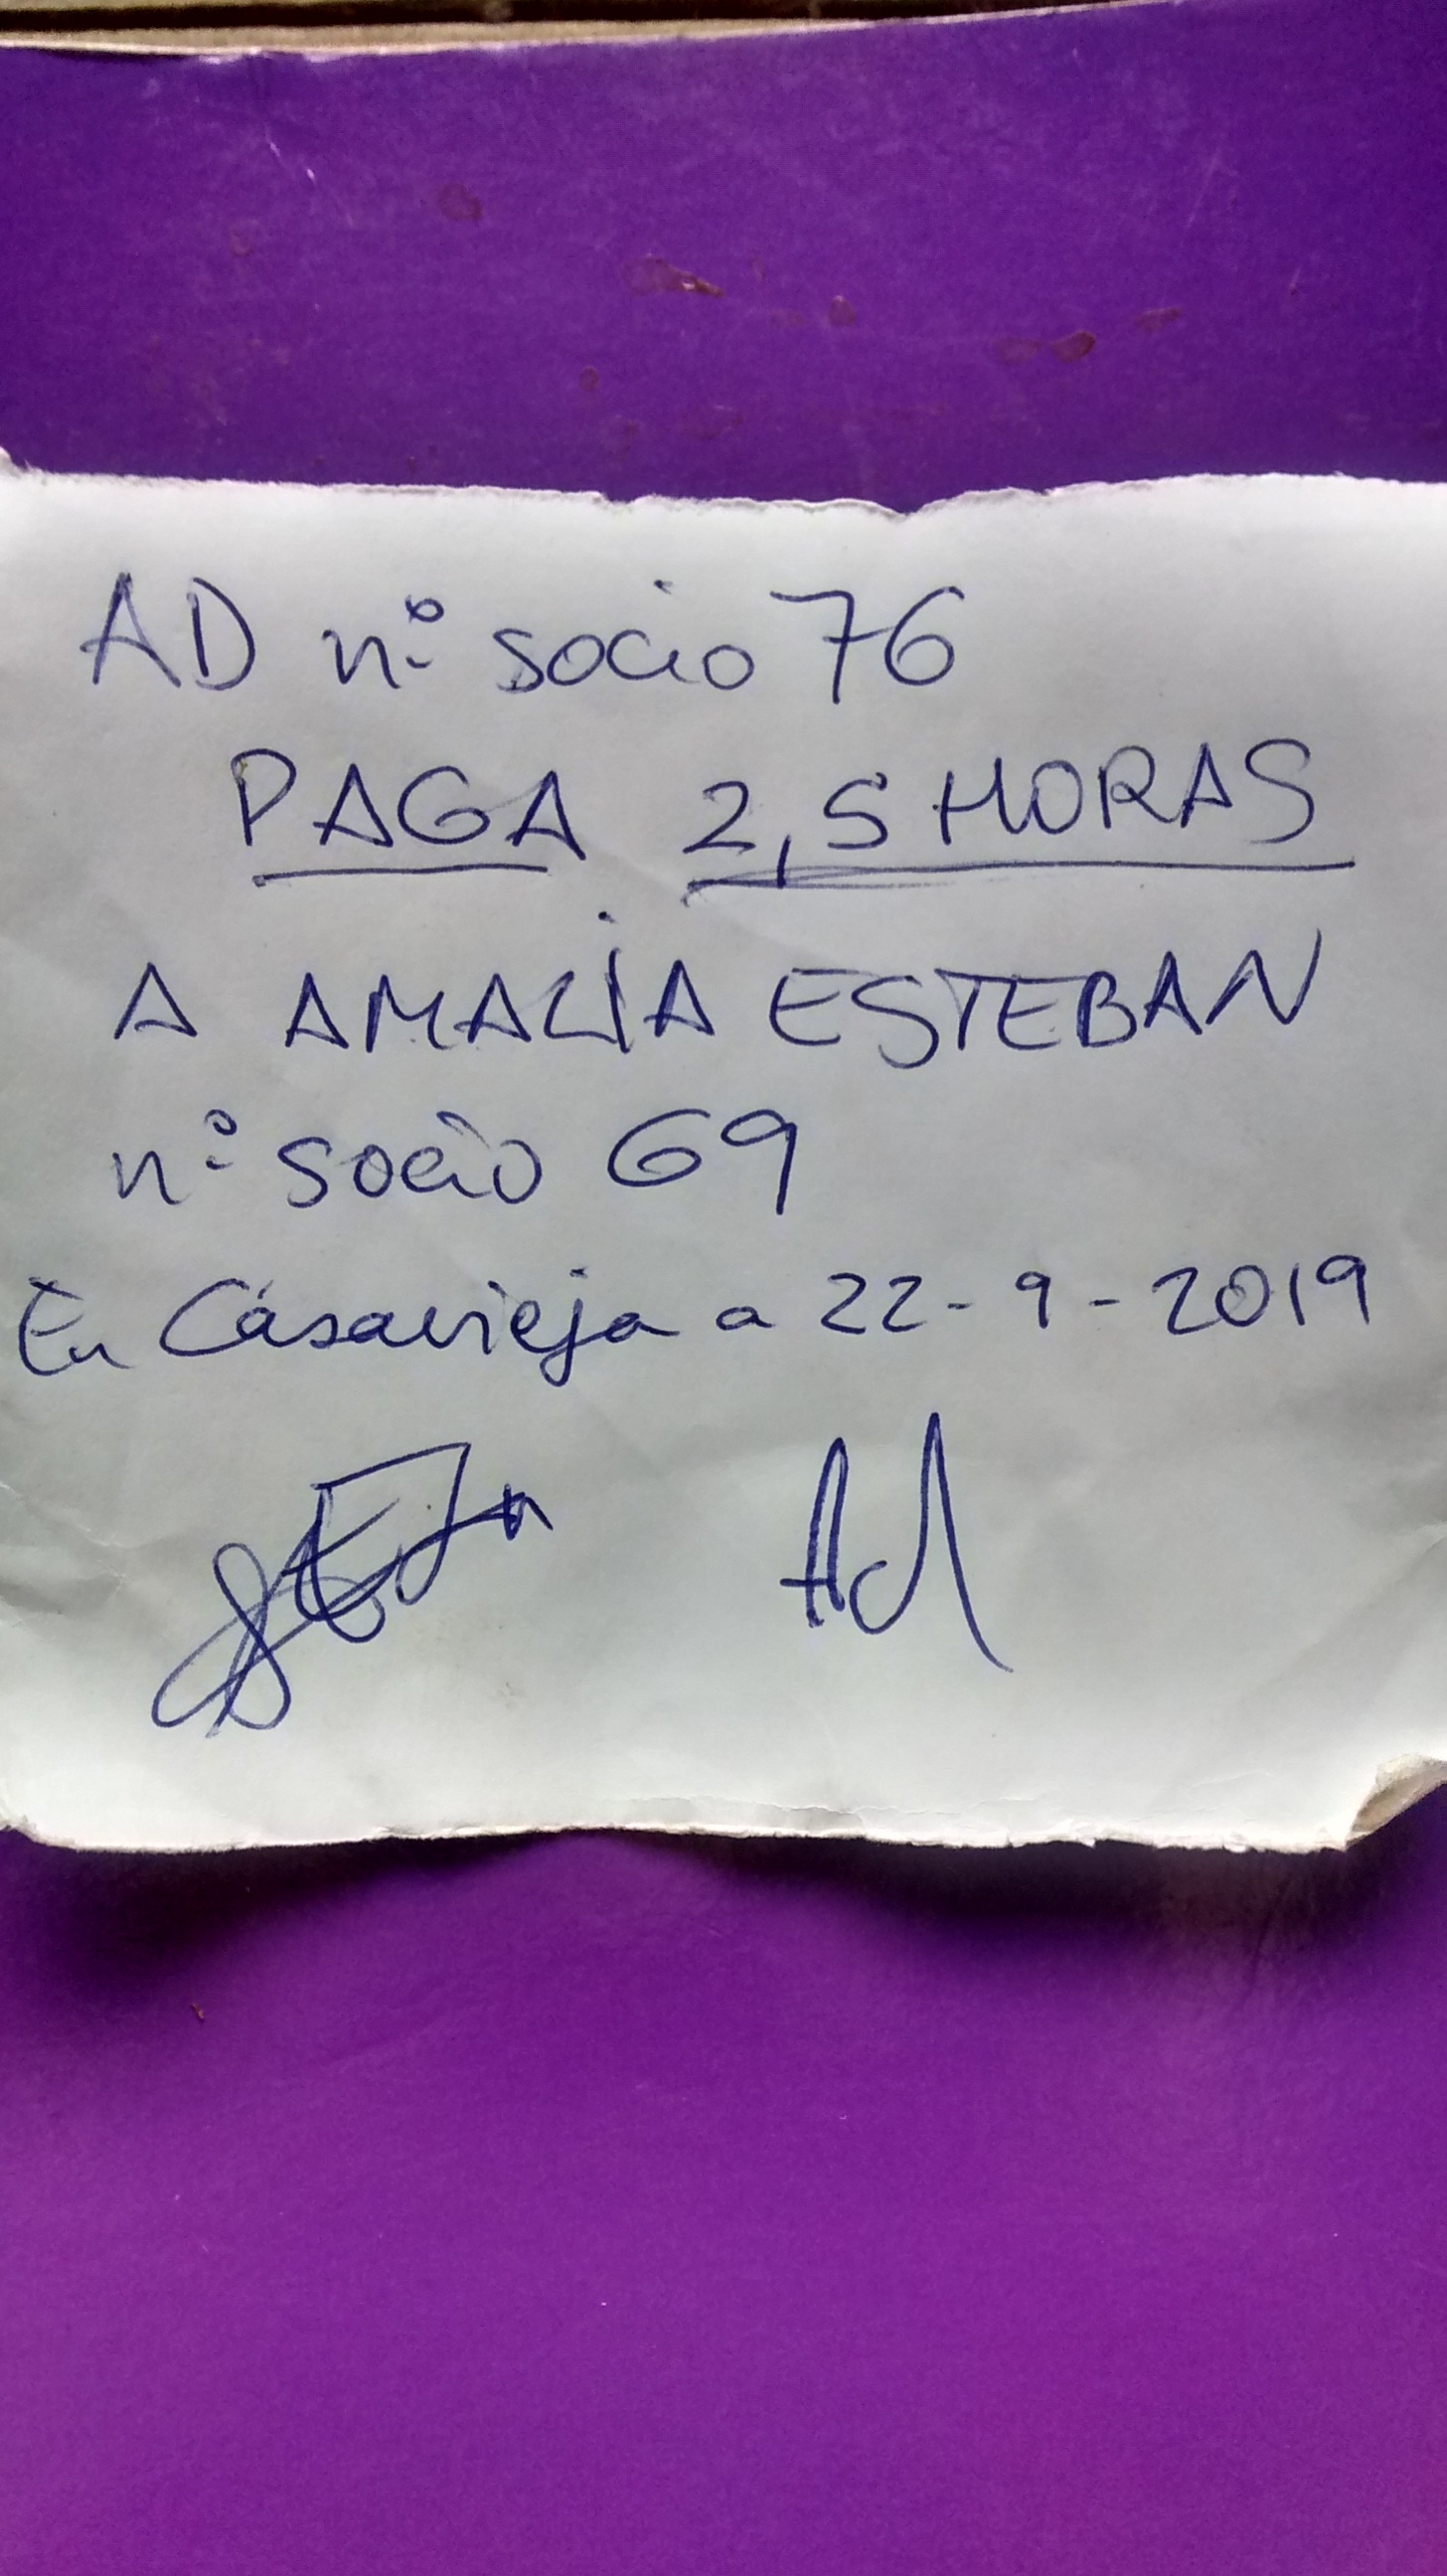 AD nº socio 76
PAGA 2,5 HORAS
A AMALIA ESTEBAN
nº socio 69
En Casavieja a 22-9-2019
Ad